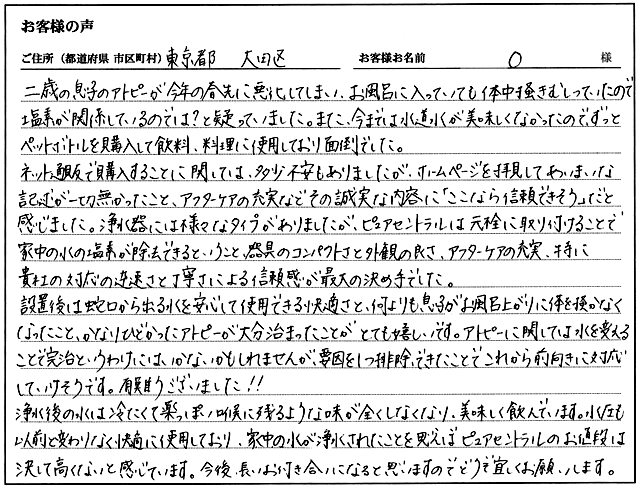 お客様の声
ご住所（都道府県 市区町村）東京都 大田区 お客様お名前 O 様
二歳の息子のアトピーが今年の春先に悪化してしまい、お風呂に入っていても体中掻きむしっていたので
塩素が関係しているのでは？と疑っていました。また、今までは水道水が美味しくなかったのでずっと
ペットボトルを購入して飲料、料理に使用しており面倒でした。
ネット通販で購入することに関しては、多少不安もありましたが、ホームページを拝見してあいまいな
記述が一切無かったこと、アフターケアの充実などその誠実な内容に「ここなら信頼できそう」だと
感じました。浄水器には様々なタイプがありましたが、ピュアセントラルは元栓に取り付けることで
家中の水の塩素が除去できるということ、器具のコンパクトさと外観の良さ、アフターケアの充実、特に
貴社の対応の迅速さと丁寧さによる信頼感が最大の決め手でした。
設置後は蛇口から出る水を安心して使用できる快適さと、何よりも息子がお風呂上がりに体を掻かなく
なったこと、かなりひどかったアトピーが大分治まったことがとても嬉しいです。アトピーに関しては水を変える
ことで完治というわけには、いかないかもしれませんが、要因を1つ排除できたことでこれから前向きに対応
していけそうです。有難うございました！！
浄水後の水は冷たくて薬っぽい喉に残るような味が全くしなくなり、美味しく飲んでいます。水圧も
以前と変わりなく快適に使用しており、家中の水が浄水されたことを思えばピュアセントラルのお値段は
決して高くないと感じています。今後、長いお付き合いになると思いますのでどうぞ宜しくお願いします。